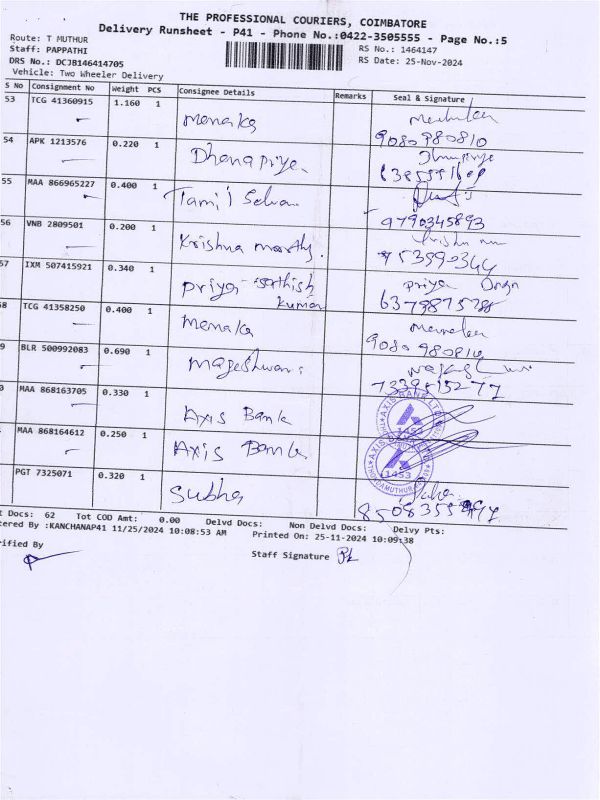 THE PROFESSIONAL COURIERS, COIMBATORE
Delivery Runsheet - P41 - Phone No.:0422-3505555 - Page No.:5
Route: T MUTHUR
Staff: PAPPATHI RS No.: 1464147
DRS No.: DCJB146414705 RS Date: 25-Nov-2024
Vehicle: Two Wheeler Delivery
S No Consignment No Weight PCS Consignee Details Remarks Seal & Signature
53 TCG 41360915 1.160 1 Menaka
9080980810
54 APK 1213576 0.220 1 Dhanapriya.
55 MAA 866965227 0.400 1 Tamil Selva
9790345893
56 VNB 2809501 0.200 1 Krishna
57 IXM 507415921 0.340 1 Priya Sathish Kumar Priya
8 TCG 41358250 0.400 1 Menaka
9080980810
9 BLR 500992083 0.690 1 Mageshwari
MAA 868163705 0.330 1 Axis Bank
MAA 868164612 0.250 1 Axis Bank
AXIS BANK LTD
1453
1453
PGT 7325071 0.320 1 Subha
t Docs: 62 Tot COD Amt: 0.00 Delvd Docs: Non Delvd Docs: Delvy Pts:
tered By :KANCHANAP41 11/25/2024 10:08:53 AM Printed On: 25-11-2024 10:09:38
rified By Staff Signature